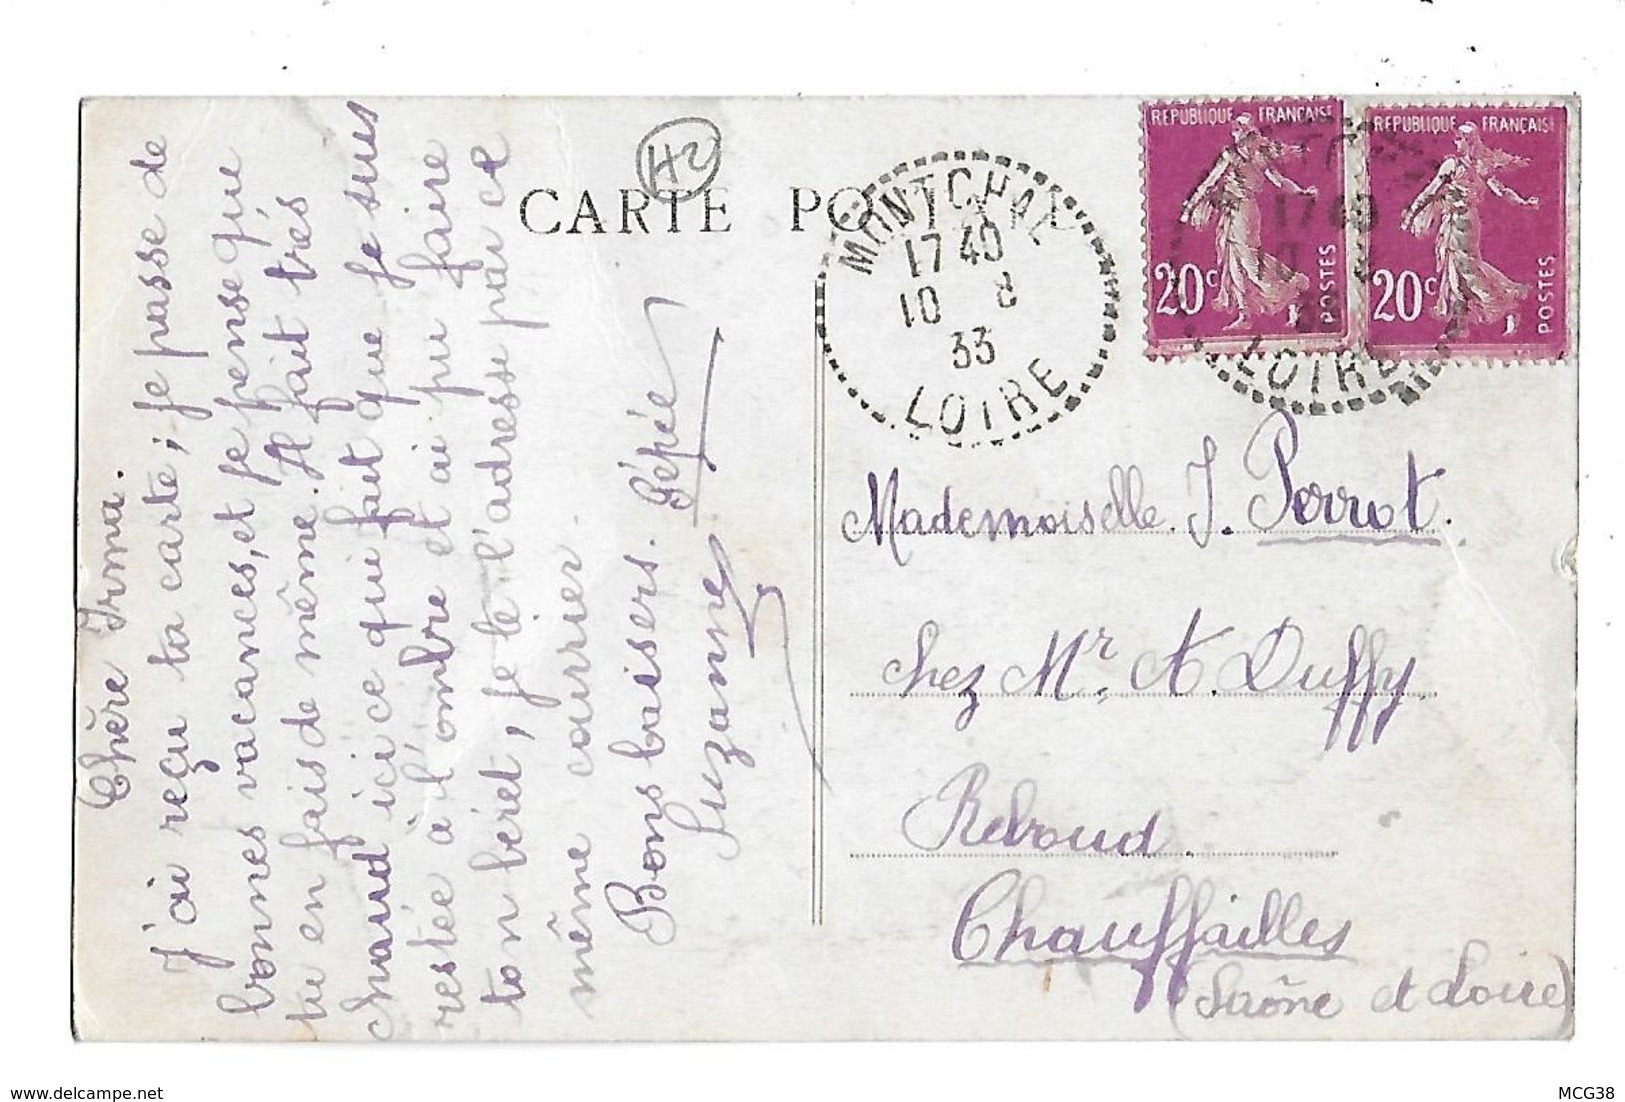 H2
CARTE POSTALE
MONTCHAL
17 40
10 8
33
LOIRE
REPUBLIQUE FRANÇAISE
20c
POSTES
REPUBLIQUE FRANÇAISE
20c
POSTES
17 40
LOIRE
Chère Irma.
J'ai reçu ta carte, je passe de
bonnes vacances, et je pense que
tu en fais de même. Il fait très
chaud ici ce qui fait que je suis
restée à l'ombre et ai pu faire
ton béret, je te l'adresse par ce
même courrier.
Bons baisers. Bépée
Suzanne
Mademoiselle. J. Perrot.
chez Mr. A. Duffy
Reboud.
Chauffailles
(Saône et Loire)
www.delcampe.net
MCG38